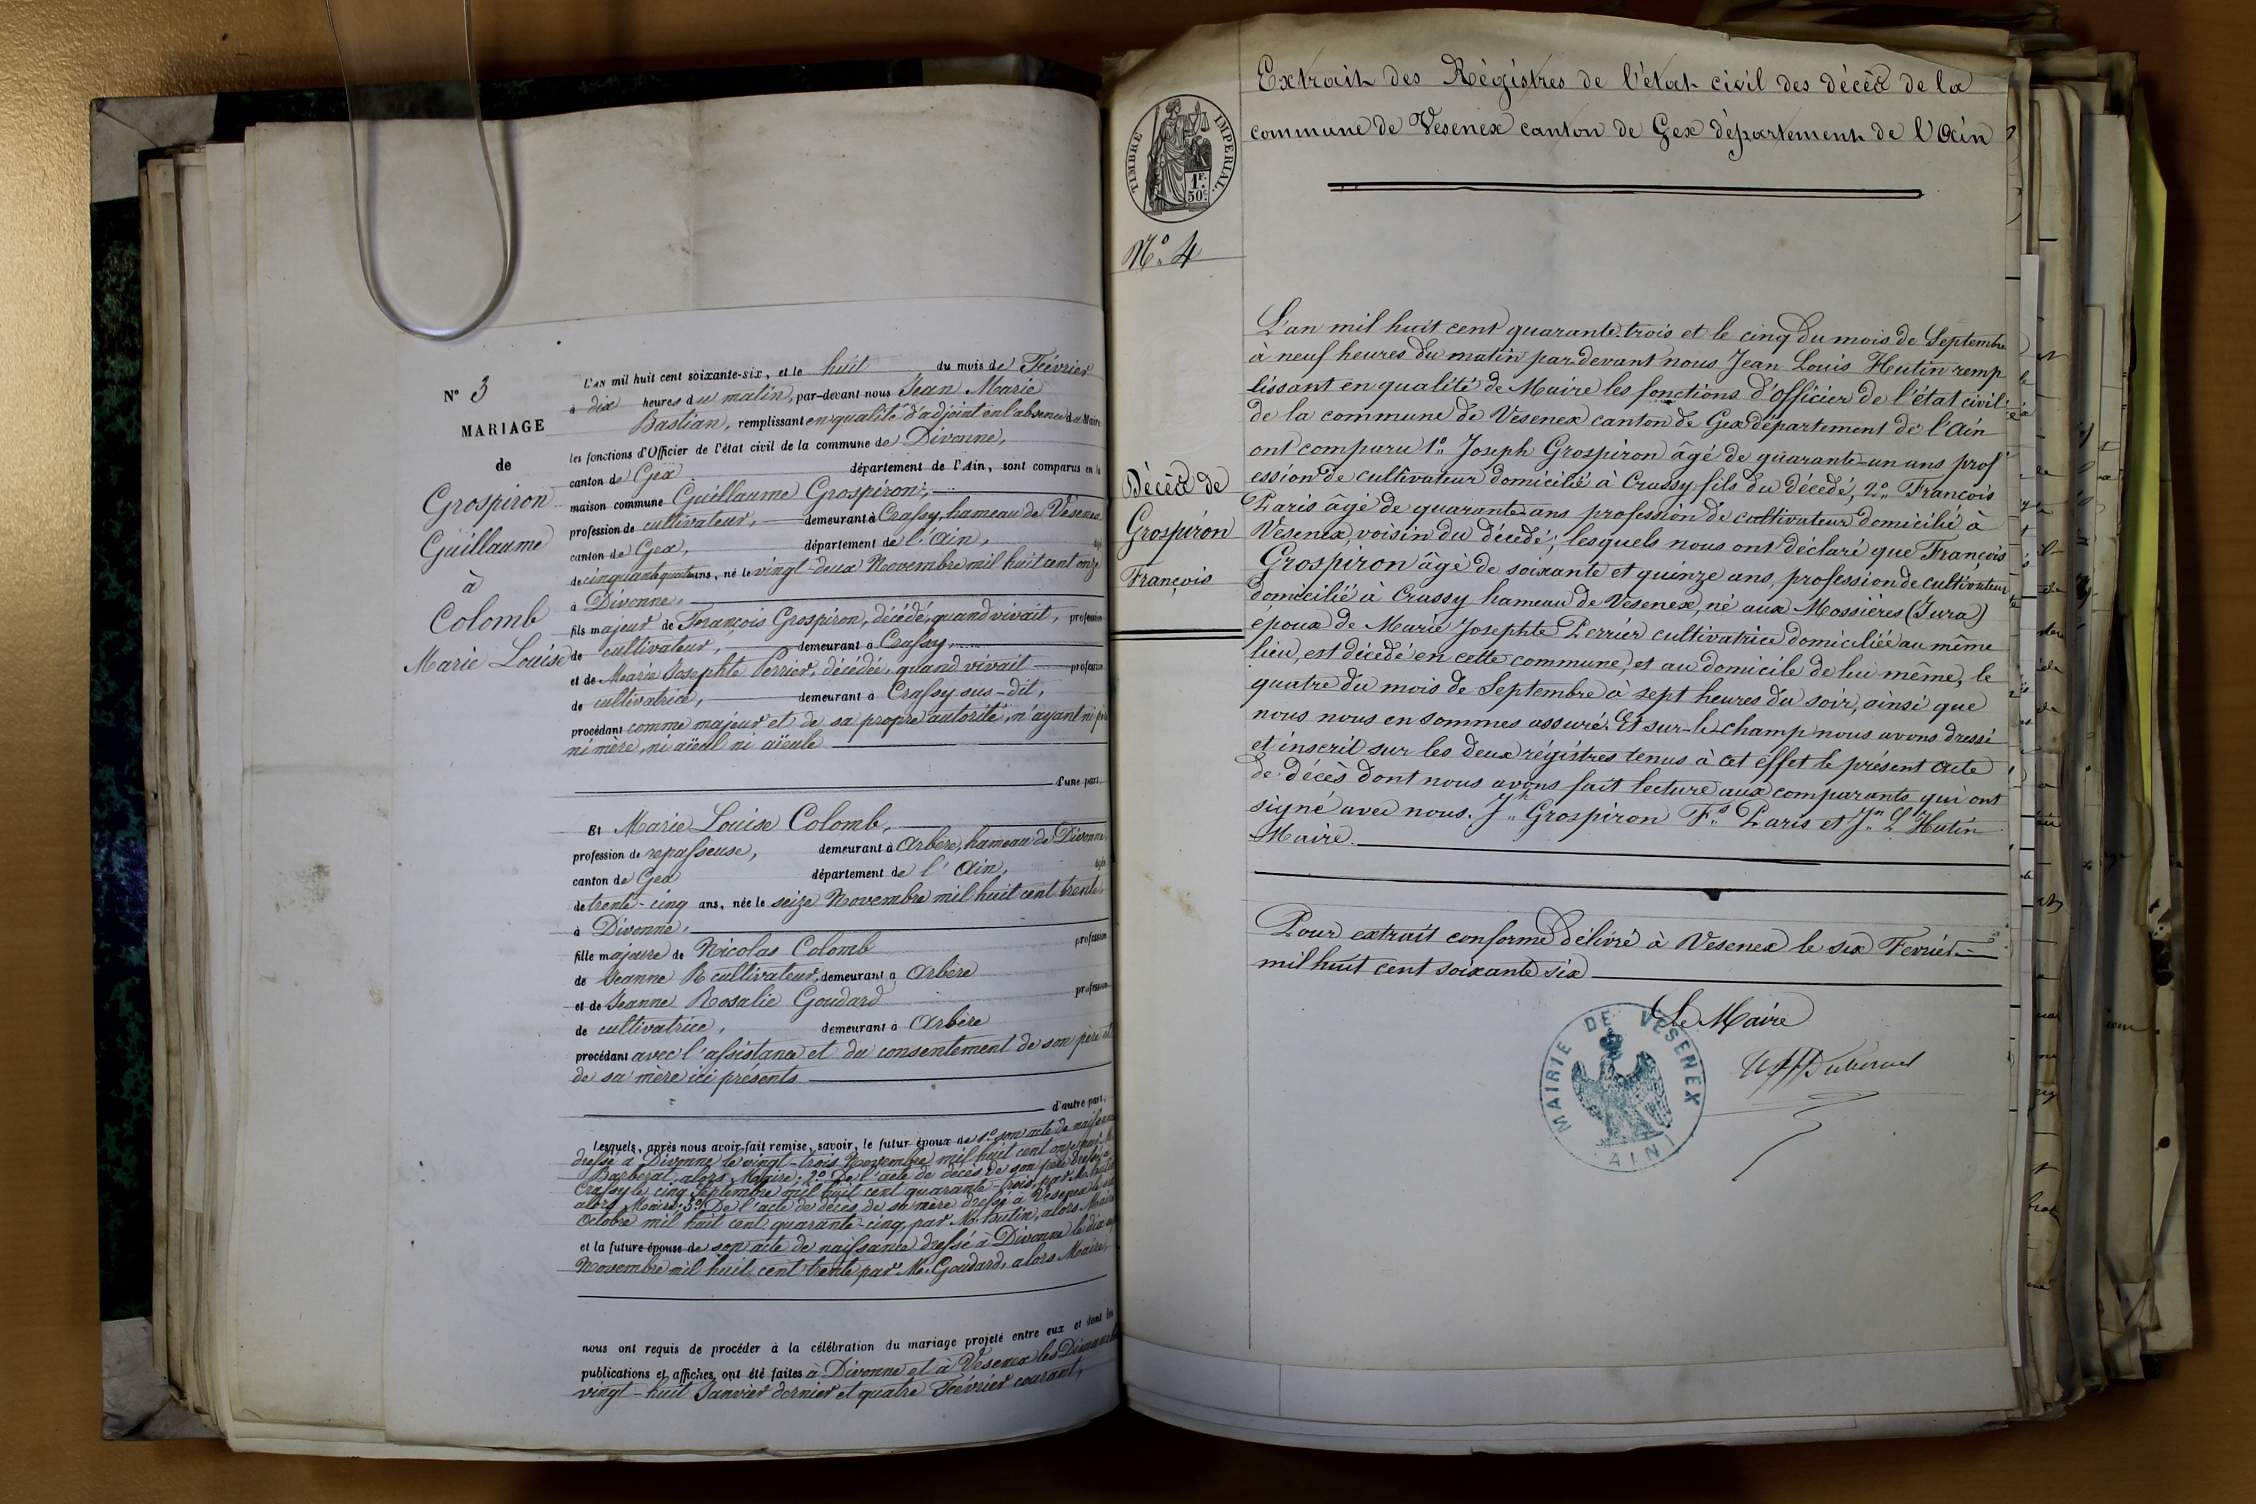 N° 3
MARIAGE
de
Grospiron
Guillaume
à
Colomb
Marie Louise
L'AN mil huit cent soixante-six, et le huit du mois de Février
à dix heures du matin, par-devant nous Jean Marie
Bastian, remplissant en qualité d'adjoint en l'absence du Maire
les fonctions d'Officier de l'état civil de la commune de Divonne,
canton de Gex département de l'Ain, sont comparus en la
maison commune Guillaume Grospiron,
profession de cultivateur, demeurant à Crassy, hameau de Vésenex
canton de Gex, département de l'Ain, âgé
de cinquante quatre ans, né le vingt-deux Novembre mil huit cent onze
à Divonne,
fils majeur de François Grospiron, décédé, quand vivait, profession
de cultivateur, demeurant à Crassy,
et de Marie Josephte Perrier, décédée, quand vivait profession
de cultivatrice, demeurant à Crassy sus-dit,
procédant comme majeur et de sa propre autorité, n'ayant ni père
ni mère, ni aïeul ni aïeule
d'une part.
Et Marie Louise Colomb,
profession de repasseuse, demeurant à Arbère, hameau de Divonne,
canton de Gex département de l'Ain, âgée
de trente-cinq ans, née le seize Novembre mil huit cent trente
à Divonne,
fille majeure de Nicolas Colomb profession
de Jeanne R cultivateur, demeurant à Arbère
et de Jeanne Rosalie Goudard profession
de cultivatrice, demeurant à Arbère
procédant avec l'assistance et du consentement de son père et
de sa mère ici présents
d'autre part,
Lesquels, après nous avoir fait remise, savoir, le futur époux de 1° son acte de naissance
dressé à Divonne le vingt-trois Novembre mil huit cent onze par M.
Barberat, alors Maire; 2° De l'acte de décès de son père dressé à
Crassy le cinq Septembre mil huit cent quarante-trois par M. Hutin
alors Maire; 3° De l'acte de décès de sa mère dressé à Vesenex le
Octobre mil huit cent quarante-cinq par M. Hutin, alors Maire
et la future épouse de son acte de naissance dressé à Divonne le dix
Novembre mil huit cent trente par M. Goudard, alors Maire,
nous ont requis de procéder à la célébration du mariage projeté entre eux et dont les
publications et affiches ont été faites à Divonne et à Vesenex les Dimanches
vingt-huit Janvier dernier et quatre Février courant,
Extrait des Régistres de l'état civil des décès de la
commune de Vesenex canton de Gex département de l'Ain
TIMBRE IMPERIAL
1F.
50c.
N°. 4
Décès de
Grospiron
François
L'an mil huit cent quarante-trois et le cinq du mois de Septembre
à neuf heures du matin pardevant nous Jean Louis Hutin remp
lissant en qualité de Maire les fonctions d'officier de l'état civil
de la commune de Vesenex canton de Gex département de l'Ain
ont comparu 1°. Joseph Grospiron âgé de quarante-un ans prof
ession de cultivateur domicilié à Crassy fils du décédé, 2°. François
Paris âgé de quarante ans profession de cultivateur domicilié à
Vesenex, voisin du décédé; lesquels nous ont déclaré que François
Grospiron âgé de soixante et quinze ans, profession de cultivateur
domicilié à Crassy hameau de Vesenex, né aux Mossières (Jura)
époux de Marie Josephte Perrier cultivatrice domiciliée au même
lieu, est décédé en cette commune, et au domicile de lui même, le
quatre du mois de Septembre à sept heures du soir, ainsi que
nous nous en sommes assuré. Et sur-le-champ nous avons dressé
et inscrit sur les deux régistres tenus à cet effet le présent acte
de décès dont nous avons fait lecture aux comparants qui ont
signé avec nous. Jh. Grospiron Fs. Paris et Jn. L. Hutin
Maire.
Pour extrait conforme délivré à Vesenex le six Fevrier
mil huit cent soixante six
Le Maire
MAIRIE DE VESENEX
(AIN)